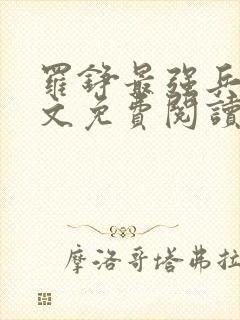 羅錚最強兵
文免費閱讀
摩洛哥塔弗拉